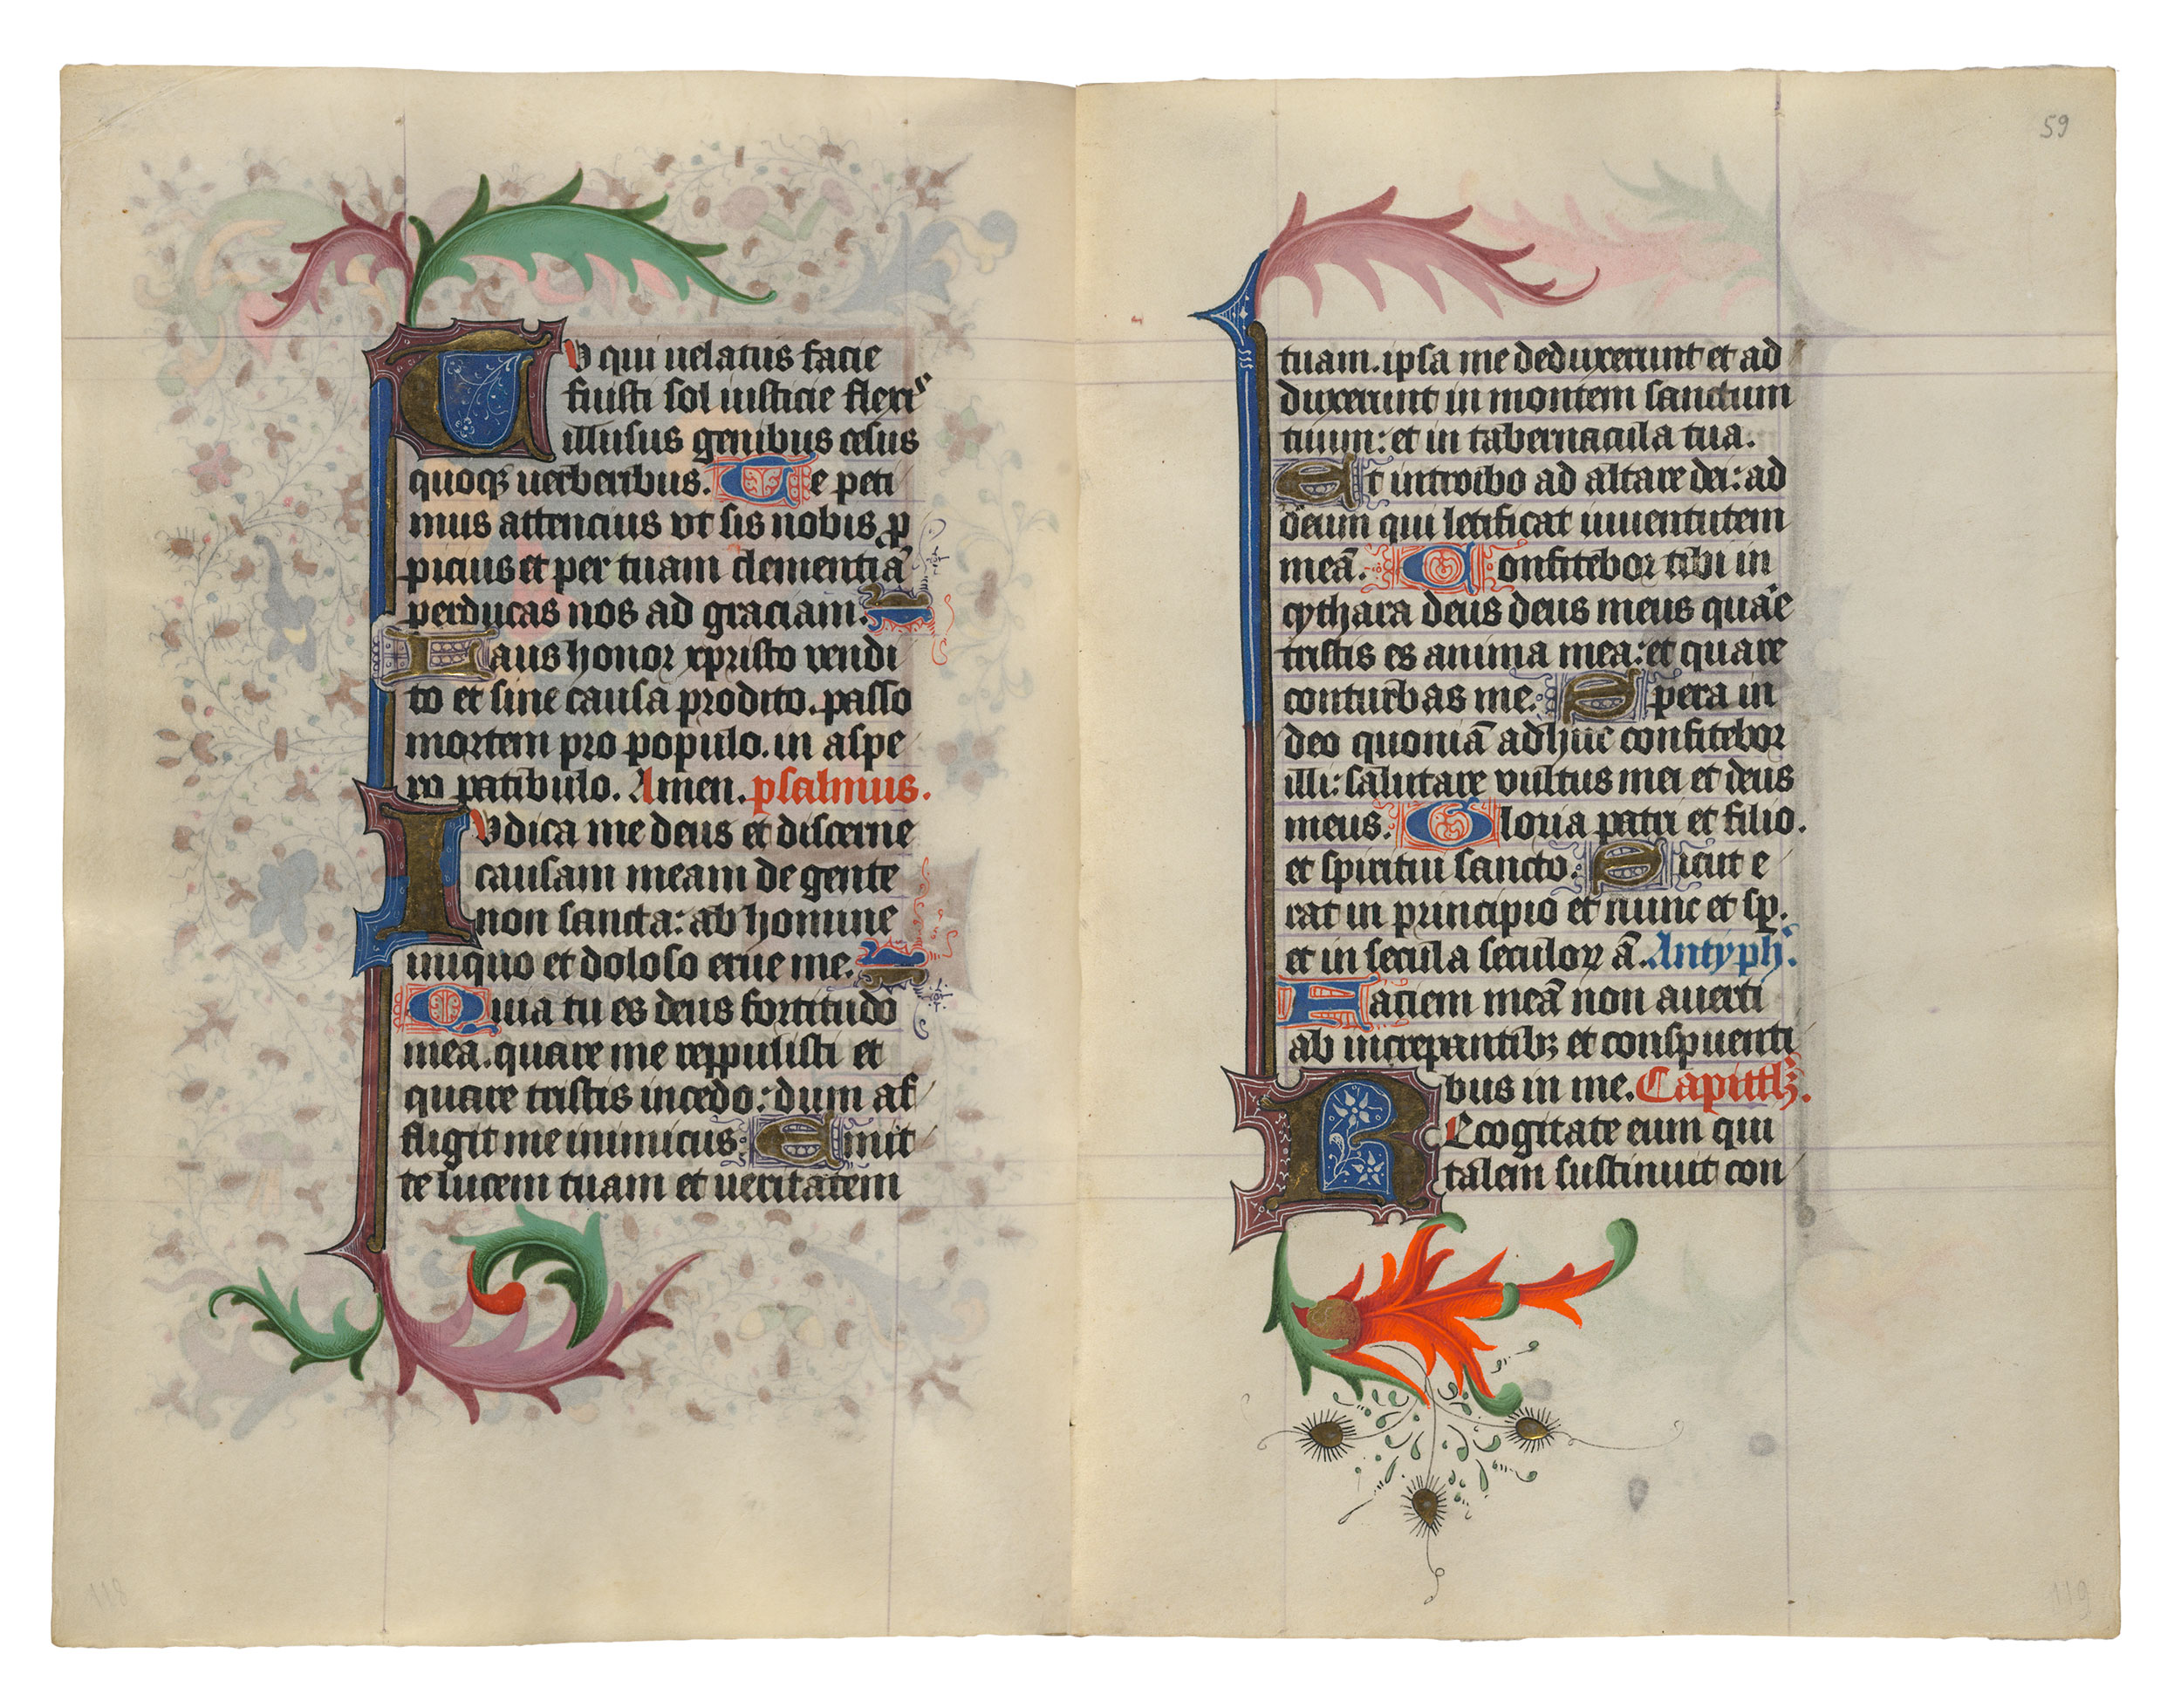 TU qui uelatus facie
fuisti sol iusticie flexis
illusus genibus cesus
quoqꝫ uerberibus. Te peti
mus attencius vt sis nobis ꝓ
picius et per tuam clementiā
perducas nos ad graciam.
Laus honor xpristo vendi
to et sine causa prodito. passo
mortem pro populo. in aspe
ro patibulo. Amen. psalmus.
IUdica me deus et discerne
causam meam de gente
non sancta: ab homine
iniquo et doloso erue me.
Quia tu es deus fortitudo
mea. quare me reppulisti et
quare tristis incedo: dum af
fligit me inimicus. Emit
te lucem tuam et ueritatem
59
tuam. ipsa me deduxerunt et ad
duxerunt in montem sanctum
tuum: et in tabernacula tua.
Et introibo ad altare dei: ad
deum qui letificat iuuentutem
meā. Confitebor tibi in
cythara deus deus meus quare
tristis es anima mea: et quare
conturbas me. Spera in
deo quoniā adhuc confitebor
illi: salutare vultus mei et deus
meus. Gloria patri et filio.
et spiritui sancto. Sicut e
rat in principio et nunc et sp̄.
et in secula seculoꝝ ā. Antyph̄.
Faciem meā non auerti
ab increpantibꝫ et conspuenti
bus in me. Capitlꝫ.
REcogitate eum qui
talem sustinuit con
118
119